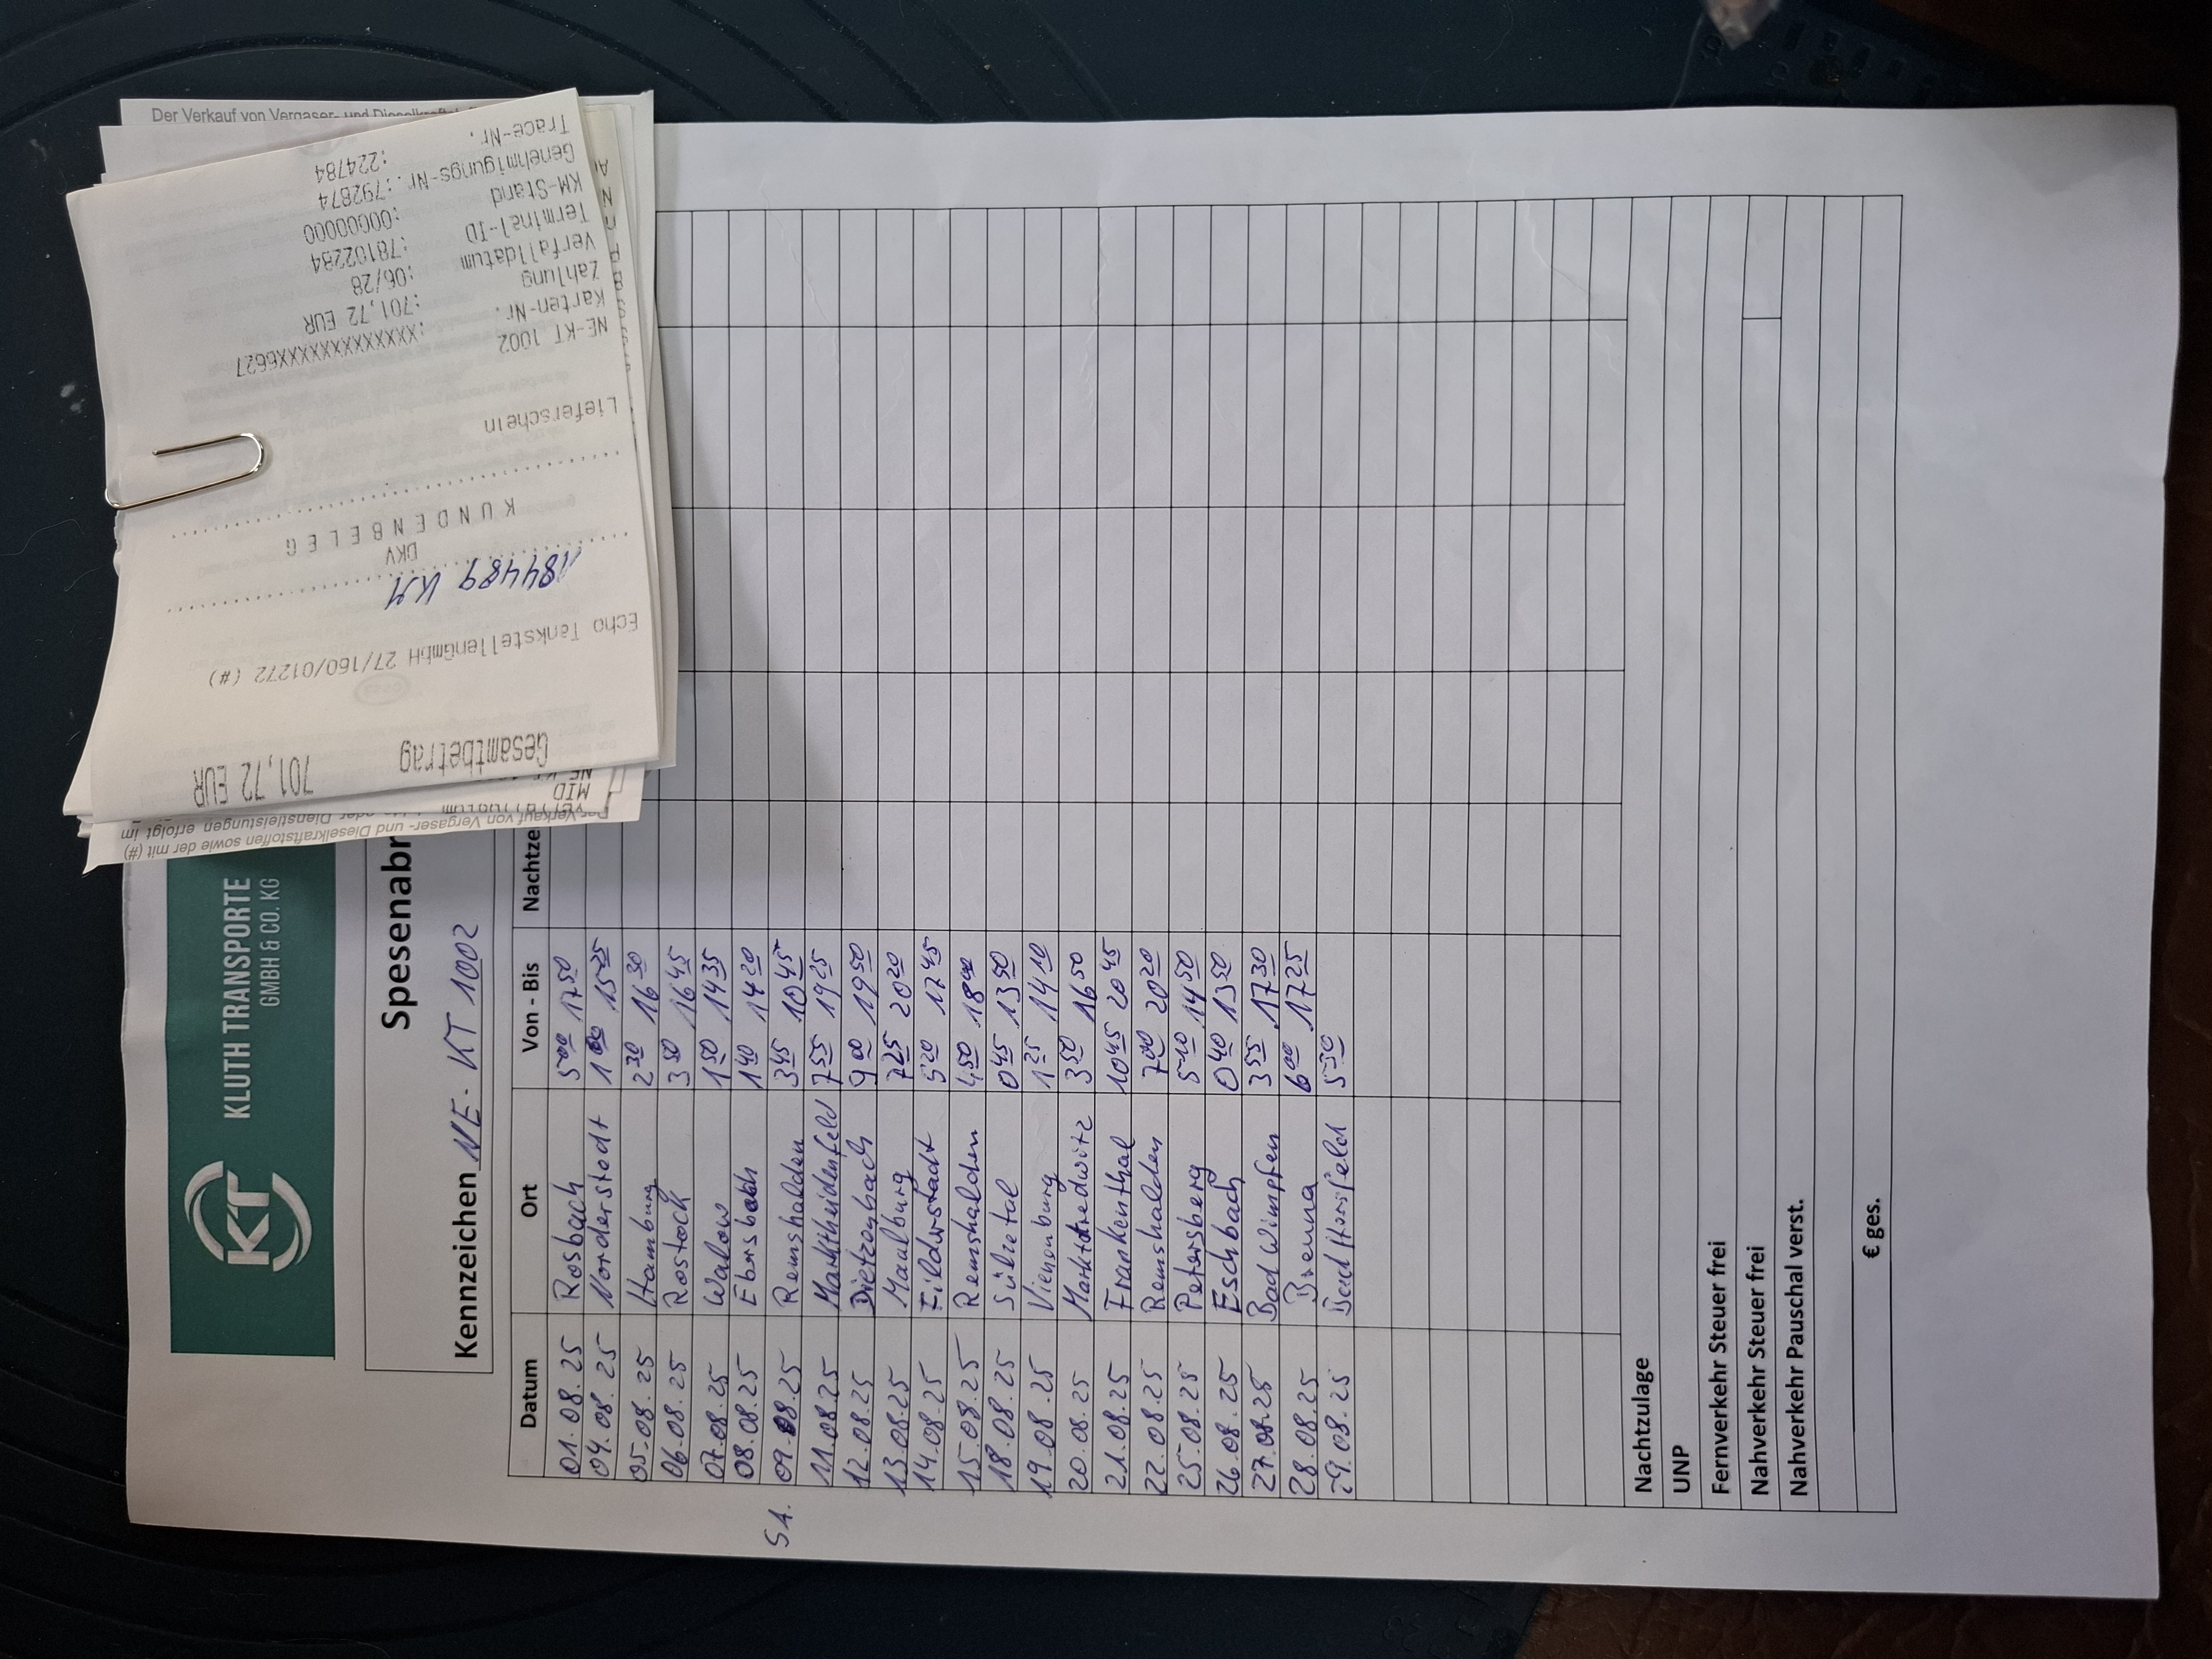 KT
KLUTH TRANSPORTE
GMBH & CO. KG
Spesenabr
Kennzeichen NE-KT 1002
Datum Ort Von - Bis Nachtze
01.08.25 Rosbach 5 00 17 50
04.08.25 Norderstedt 1 00 15 25
05.08.25 Hamburg 2 30 16 30
06.08.25 Rostock 3 50 16 45
07.08.25 Walow 1 50 14 35
08.08.25 Ebersbach 1 40 14 20
SA. 09.08.25 Remshalden 3 45 10 45
11.08.25 Marktheidenfeld 7 55 19 25
12.08.25 Dietzenbach 9 00 19 50
13.08.25 Maulburg 7 25 20 20
14.08.25 Filderstadt 5 20 17 45
15.08.25 Remshalden 4 50 18 00
18.08.25 Sülzetal 0 45 13 50
19.08.25 Vienenburg 1 25 14 10
20.08.25 Marktredwitz 3 50 16 50
21.08.25 Frankenthal 10 45 20 45
22.08.25 Remshalden 7 00 20 20
25.08.25 Petersberg 5 10 14 50
26.08.25 Eschbach 0 40 13 50
27.08.25 Bad Wimpfen 3 55 17 30
28.08.25 Brenna 6 00 17 25
29.08.25 Bad Hersfeld 5 30
Nachtzulage
UNP
Fernverkehr Steuer frei
Nahverkehr Steuer frei
Nahverkehr Pauschal verst.
€ ges.
Der Verkauf von Vergaser- und Dieselkraftstoffen sowie der mit (#)
oder Dienstleistungen erfolgt im
MID
Gesamtbetrag 701,72 EUR
Echo TankstellenGmbH 27/160/01272 (#)
184489 KM
DKV
KUNDENBELEG
Lieferschein
NE-KT 1002
Karten-Nr. :XXXXXXXXXXXXXX6627
Zahlung :701,72 EUR
Verfalldatum :06/28
Terminal-ID :78102284
KM-Stand :00000000
Genehmigungs-Nr.:792874
Trace-Nr. :224784
Der Verkauf von Vergaser- und